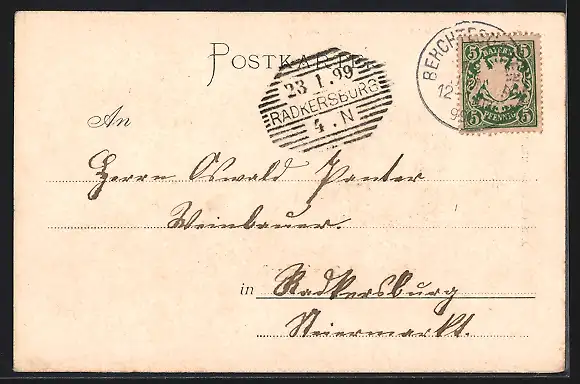 POSTKARTE
23.1.99
RADKERSBURG
4.N
BERCHTESG
12
BAYERN
5 5
PFENNIG
5 5
An
Herrn Oswald Panter
Weinbauer.
in Radkersburg
Steiermarkt.